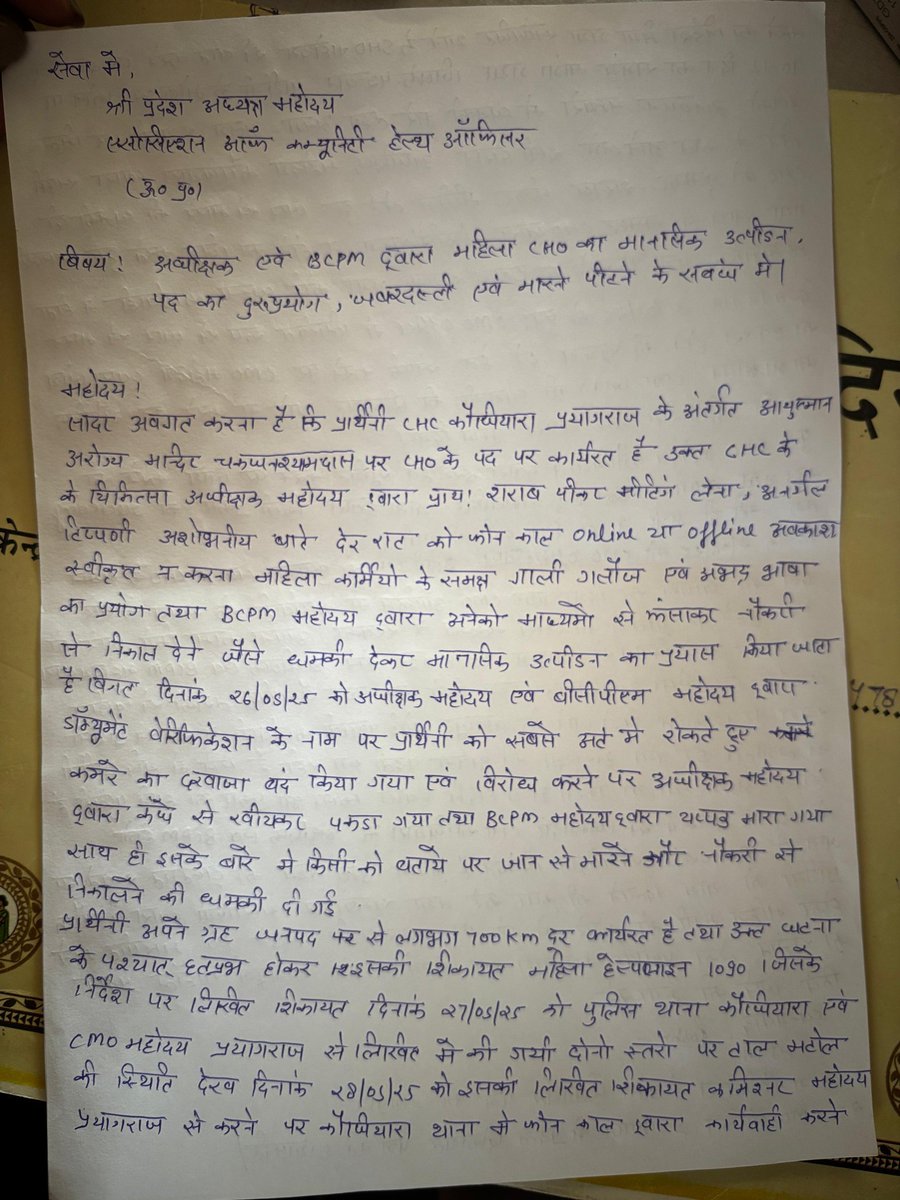 सेवा में,
श्री प्रदेश अध्यक्ष महोदय
एसोसिएशन आफ कम्यूनिटी हेल्थ ऑफिसर
(उ० प्र०)
विषय: अधीक्षक एवं BCPM द्वारा महिला CHO का मानसिक उत्पीडन,
पद का दुरुप्रयोग, जबरदस्ती एवं मारने पीटने के संबंध मे।
महोदय!
सादर अवगत करना है कि प्रार्थिनी CHC कौंधियारा प्रयागराज के अंतर्गत आयुष्मान
अरोग्य मन्दिर चकघनश्यामदास पर CHO के पद पर कार्यरत है उक्त CHC के
के चिकित्सा अधीक्षक महोदय द्वारा प्रायः शराब पीकर मीटिंग लेना, अनर्गल
टिप्पणी अशोभनीय बाते देर रात को फोन काल online या offline अवकाश
स्वीकृत न करना महिला कर्मियो के समक्ष गाली गलौज एवं अभद्र भाषा
का प्रयोग तथा BCPM महोदय द्वारा अनेको माध्यमो से फंसाकर नौकरी
से निकाल देने जैसे धमकी देकर मानसिक उत्पीडन का प्रयास किया जाता
है विगत दिनांक 26/05/25 को अधीक्षक महोदय एवं बीसीपीएम महोदय द्वारा
डॉक्यूमेंट वेरिफिकेशन के नाम पर प्रार्थिनी को सबसे अंत मे रोकते हुए
कमरे का दरवाजा बंद किया गया एवं विरोध करने पर अधीक्षक महोदय
द्वारा कंधे से खींचकर पकडा गया तथा BCPM महोदय द्वारा थप्पड़ मारा गया
साथ ही इसके बारे मे किसी को बताये पर जान से मारने और नौकरी से
निकालने की धमकी दी गई
प्रार्थिनी अपने ग्रह जनपद घर से लगभग 700 km दूर कार्यरत है तथा उक्त घटना
के पश्चात् हतप्रभ होकर इसकी शिकायत महिला हेल्पलाइन 1090 जिसके
निर्देश पर लिखित शिकायत दिनांक 27/05/25 को पुलिस थाना कौंधियारा एवं
CMO महोदय प्रयागराज से लिखित मे की गयी दोनो स्तरो पर टाल मटोल
की स्थिति देख दिनांक 28/05/25 को इसकी लिखित शिकायत कमिश्नर महोदय
प्रयागराज से करने पर कौंधियारा थाना मे फोन काल द्वारा कार्यवाही करने